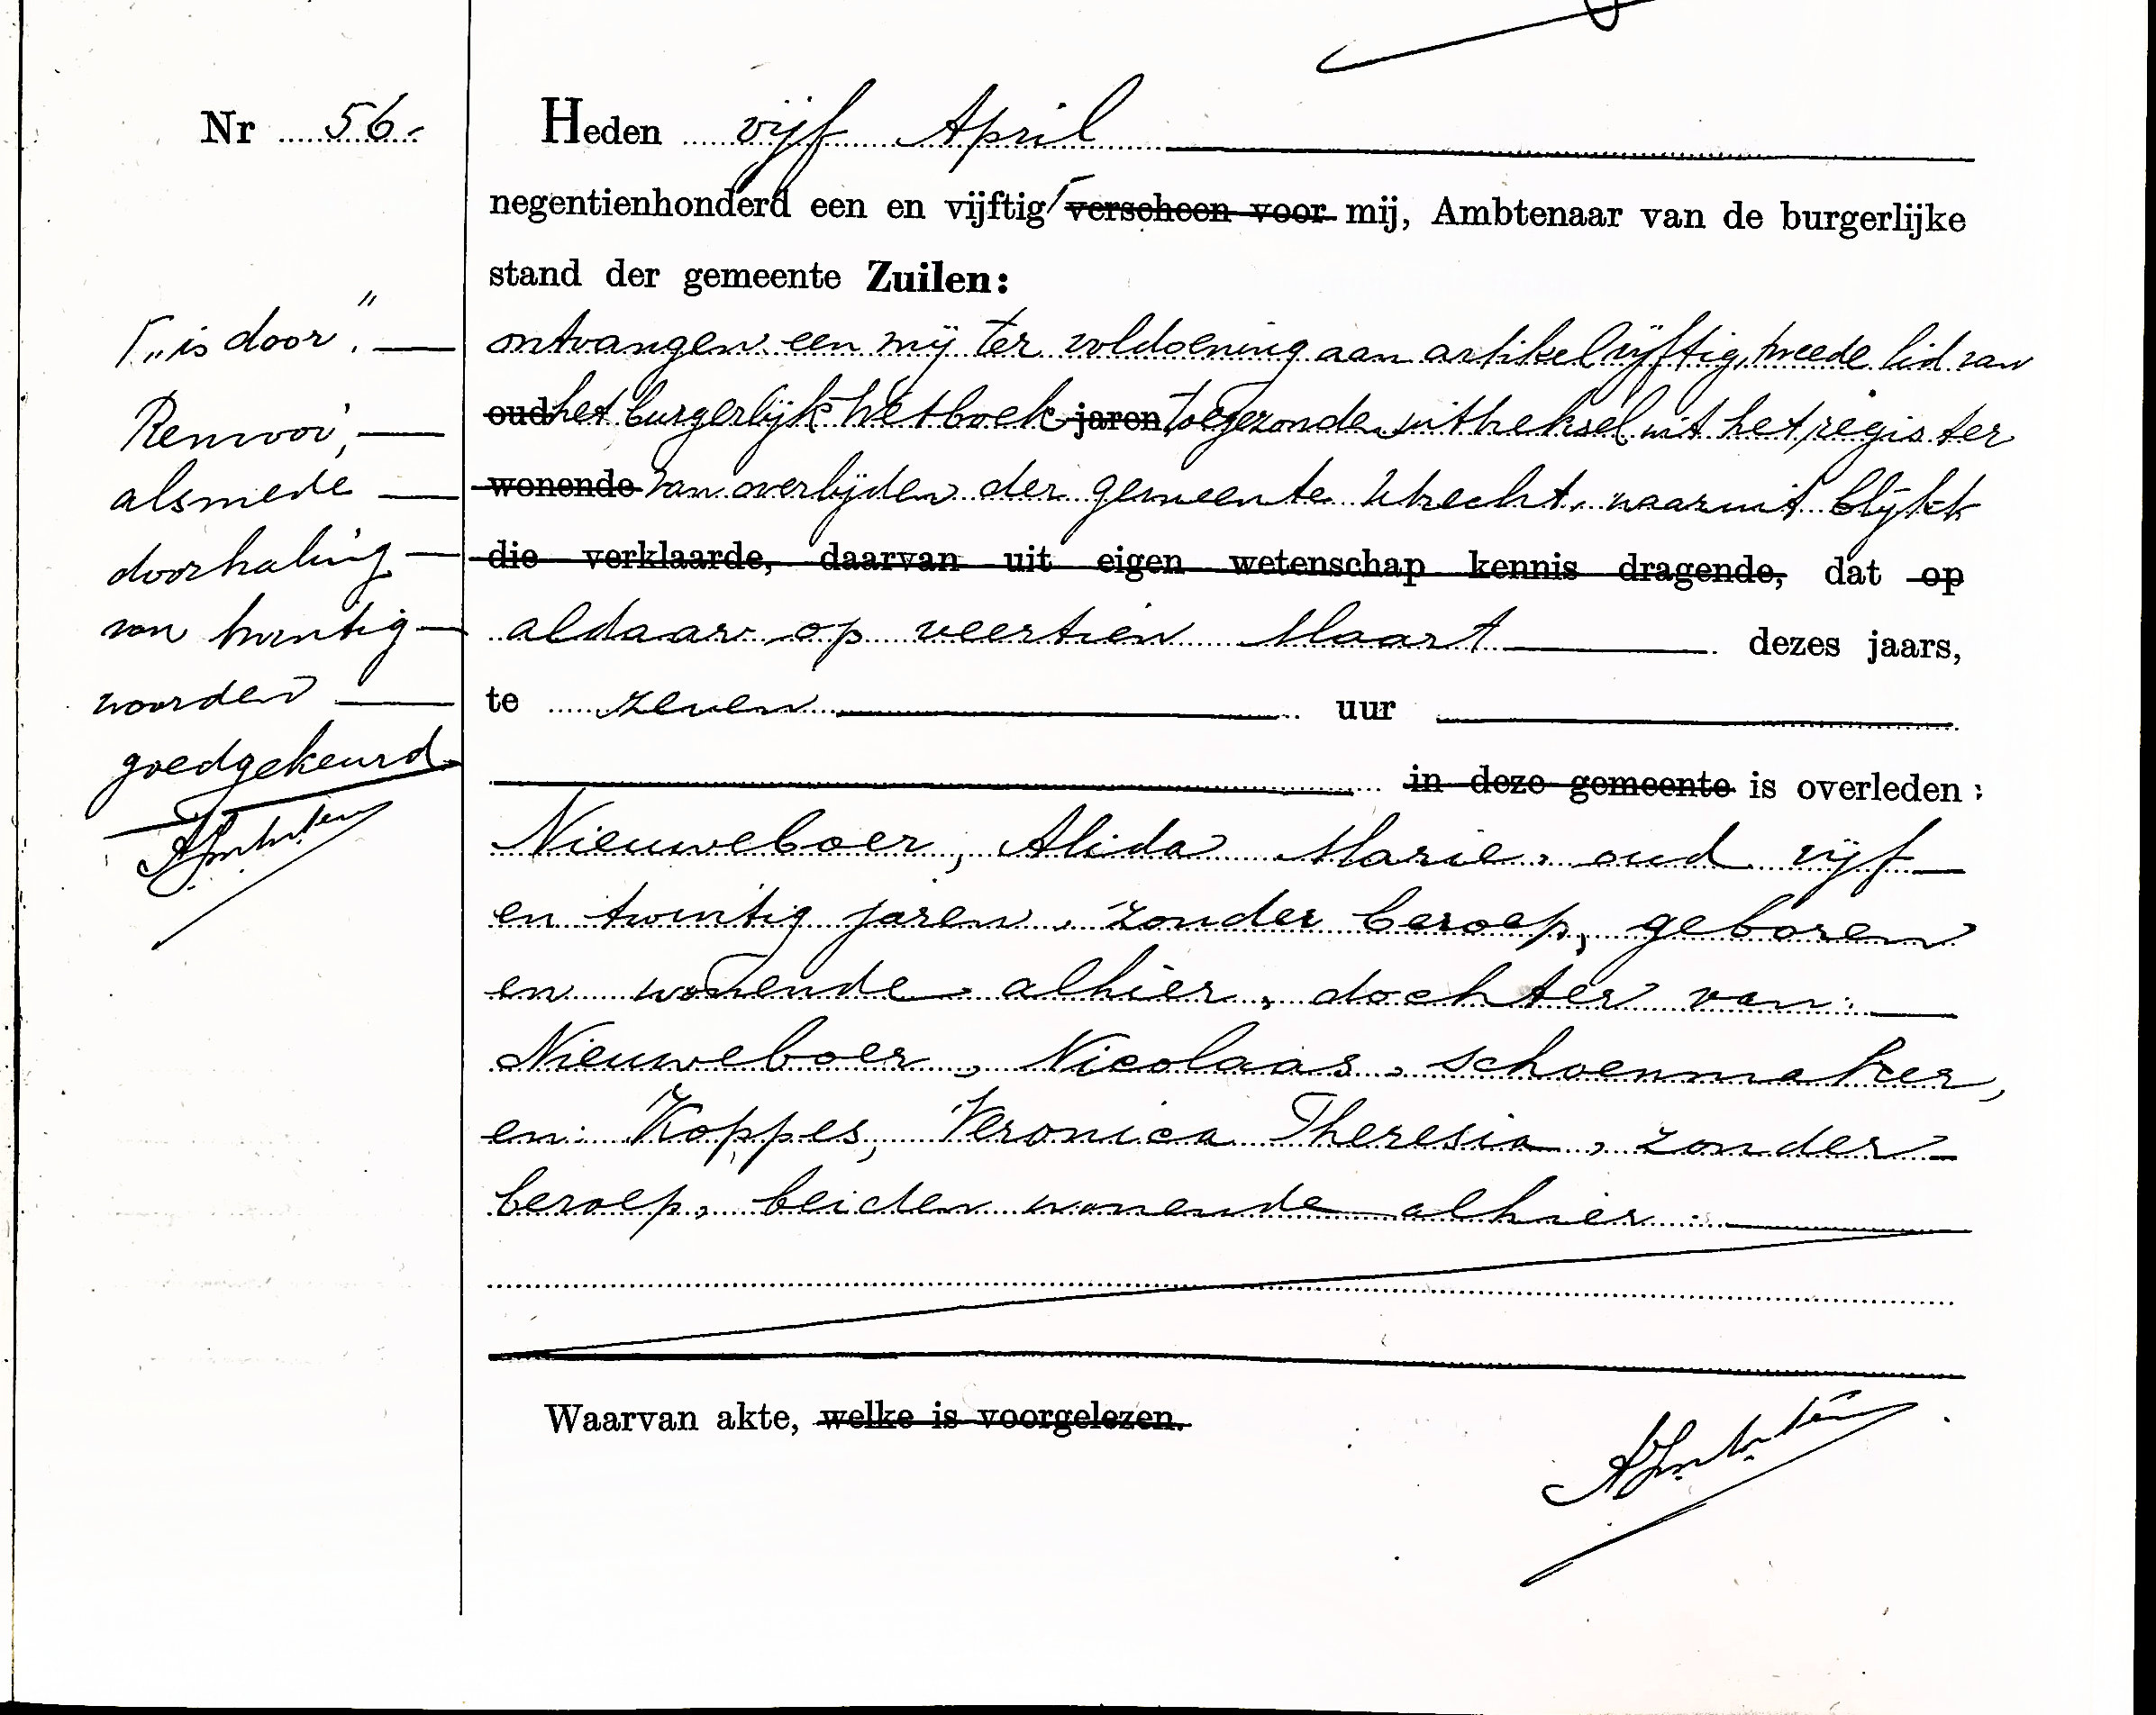 Nr 56.
Heden vijf April
negentienhonderd een en vijftig ⌈ verscheen voor mij, Ambtenaar van de burgerlijke
stand der gemeente Zuilen:
ontvangen een mij ter voldoening aan artikel vijftig, tweede lid van
oud het Burgerlijk Wetboek jaren toegezonden uittreksel uit het register
wonende van overlijden der gemeente Utrecht, waaruit blijkt
die verklaarde, daarvan uit eigen wetenschap kennis dragende, dat op
aldaar op veertien Maart dezes jaars,
te zeven uur
in deze gemeente is overleden:
Nieuweboer, Alida Marie, oud vijf
en twintig jaren, zonder beroep, geboren
en wonende alhier, dochter van:
Nieuweboer, Nicolaas, schoenmaker,
en: Koppes, Veronica Theresia, zonder
beroep, beiden wonende alhier.
Waarvan akte, welke is voorgelezen.
⌈ „is door".
Renvooi,
alsmede
doorhaling
van twintig
woorden
goedgekeurd